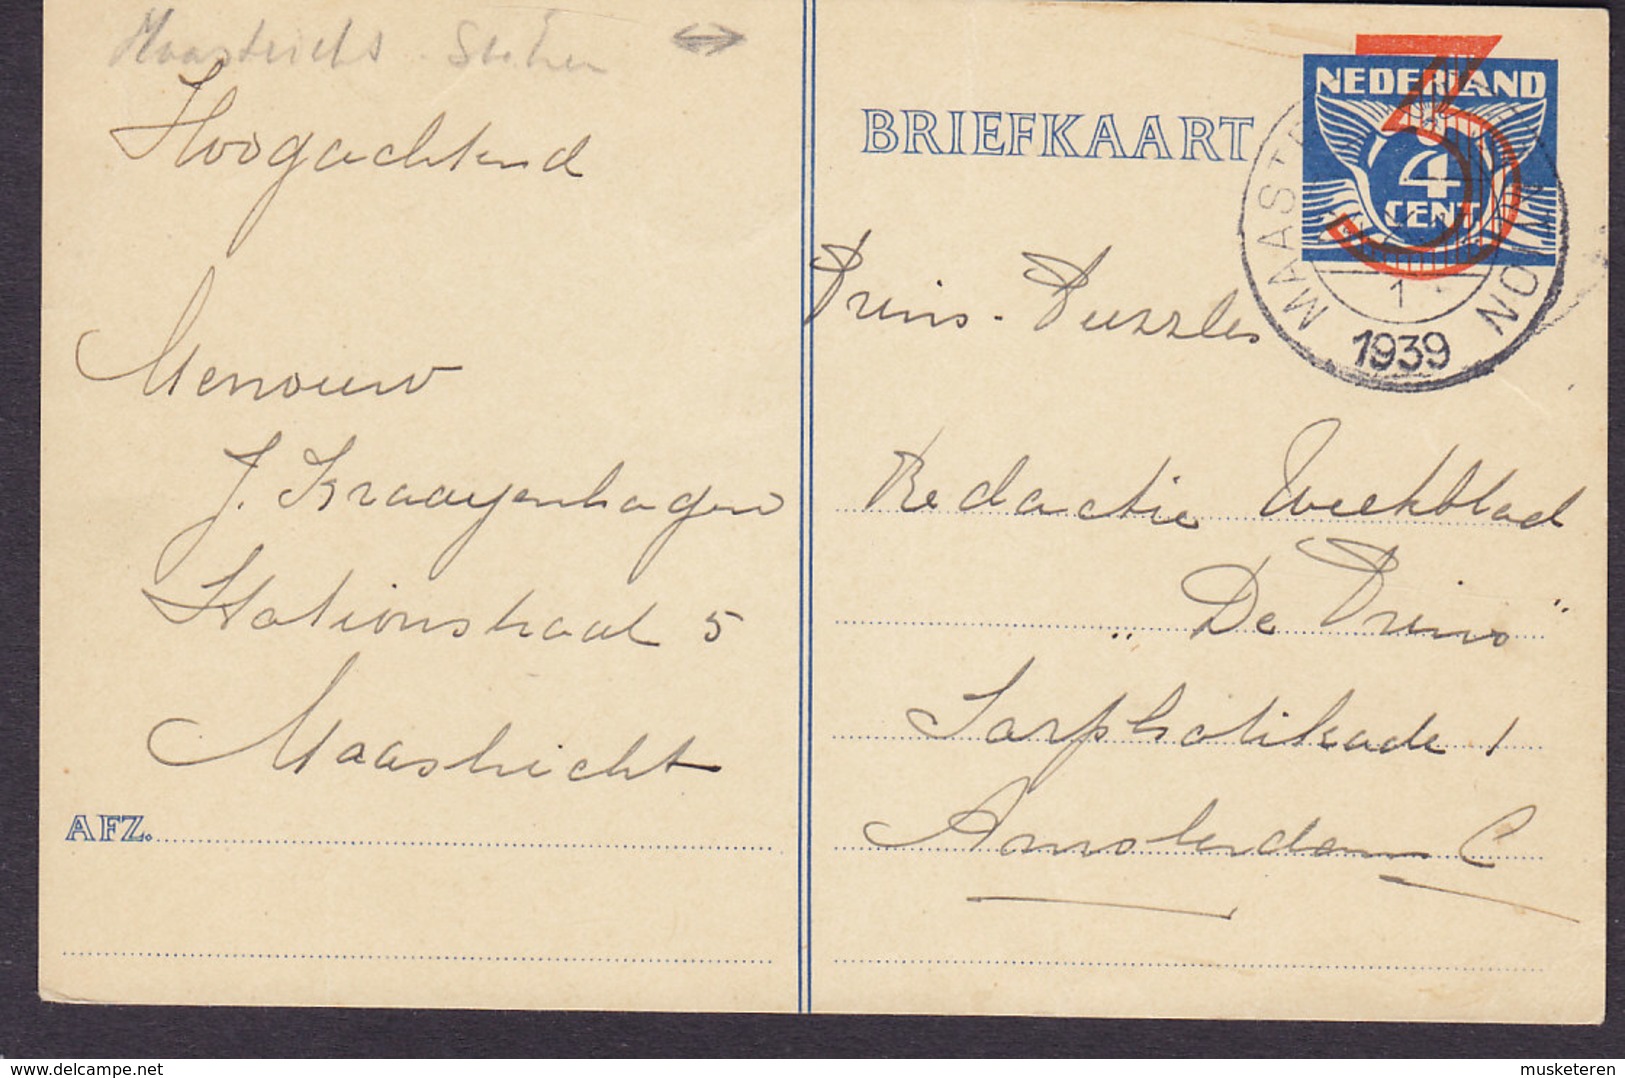 Maastricht - Station
Hoogachtend
Mevrouw
J. Kraayenhagen
Stationstraat 5
Maastricht
AFZ.
BRIEFKAART
NEDERLAND
3
4
CENT
MAASTR
1
1939
Prins-Puzzles
Redactie Weekblad
„De Prins"
Sarphatikade 1
Amsterdam C
musketeren
delcampe.net